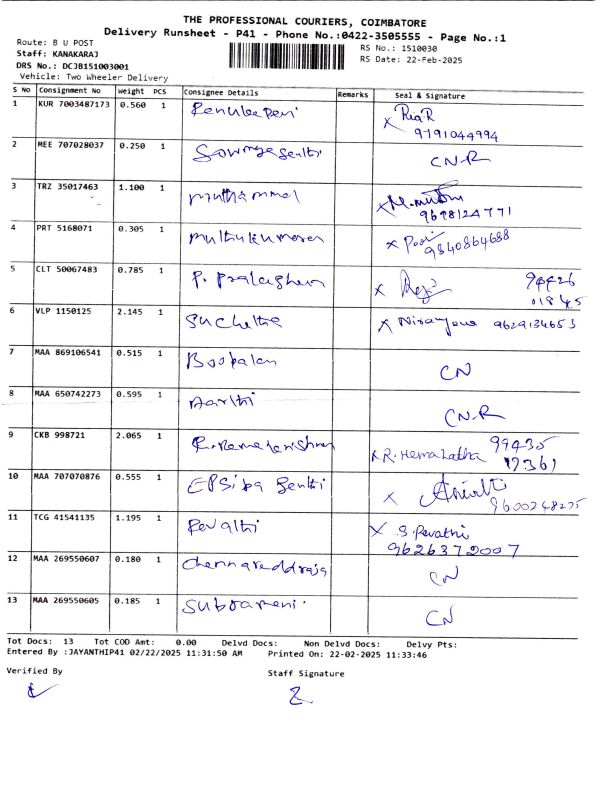 THE PROFESSIONAL COURIERS, COIMBATORE
Delivery Runsheet - P41 - Phone No.:0422-3505555 - Page No.:1
Route: B U POST
RS No.: 1510030
Staff: KANAKARAJ
RS Date: 22-Feb-2025
DRS No.: DCJB151003001
Vehicle: Two Wheeler Delivery
S No Consignment No Weight PCS Consignee Details Remarks Seal & Signature
1 KUR 7003487173 0.560 1 Renuka Ria R
9191044994
2 MEE 707028037 0.250 1 Sowmya Senthi CN-R
3 TRZ 35017463 1.100 1 muthammal M.muthu
9698124771
4 PRT 5168071 0.305 1 muthukumaran
9840864688
5 CLT 50067483 0.785 1 P. 94426
01845
6 VLP 1150125 2.145 1 Suchitha 9629134653
7 MAA 869106541 0.515 1 Boopalan CN
8 MAA 650742273 0.595 1 Aarthi CN-R
9 CKB 998721 2.065 1 R. R. HemaLatha 99435
17361
10 MAA 707070876 0.555 1 EPSiba Senthi
9600248275
11 TCG 41541135 1.195 1 Revathi S. Revathi
9626372007
12 MAA 269550607 0.180 1 Chennareddraja CN
13 MAA 269550605 0.185 1 Subramani CN
Tot Docs: 13 Tot COD Amt: 0.00 Delvd Docs: Non Delvd Docs: Delvy Pts:
Entered By :JAYANTHIP41 02/22/2025 11:31:50 AM Printed On: 22-02-2025 11:33:46
Verified By
Staff Signature